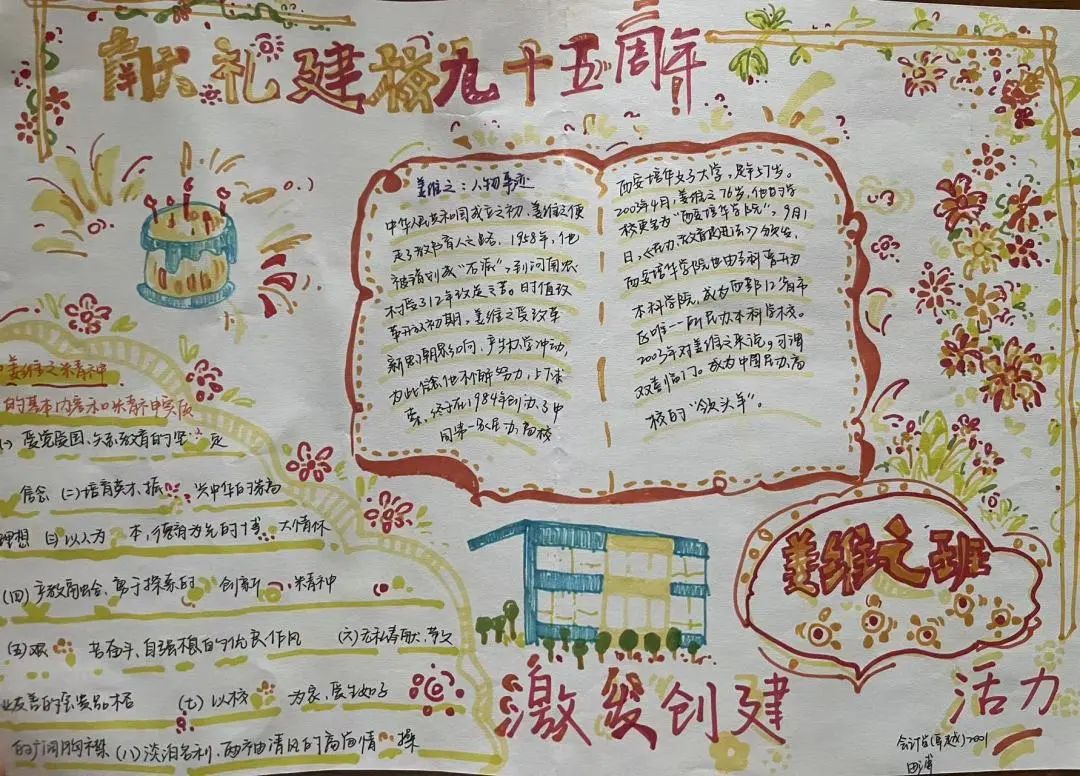 献礼建校九十五周年
姜维之：人物事迹
中华人民共和国成立之初，姜维之便
走了教书育人之路。1958年，他
被错划成“右派”，到河南农
村受了12年改造之苦。时值改
革开放初期，姜维之受改革
新思潮影响，产生办学冲动，
为此信念，他不懈努力，上下求
索，终于在1984年创办了中
国第一所民办高校
西安培华女子大学，是年57岁。
2003年4月，姜维之76岁，他的学
校更名为“西安培华学院”，9月1
日，《民办教育促进法》颁发，
西安培华学院也由专科晋升为
本科学院，成为西部12省市
区唯一一所民办本科学校。
2003年对姜维之来说，可谓
双喜临门。成为中国民办高
校的“领头羊”。
姜维之精神
的基本内容和精神实质
(一) 爱党爱国、矢志教育的坚定
信念 (二)培育英才、振兴中华的崇高
理想 (三)以人为本，德育为先的博大情怀
(四) 产教融合、勇于探索的创新精神
(五)艰苦奋斗、自强不息的优良作风 (六)无私奉献、敬
业友善的珍贵品格 (七) 以校为家、爱生如子
的广阔胸襟 (八)淡泊名利、两袖清风的高尚情操
姜维之班
激发创建
活力
2001